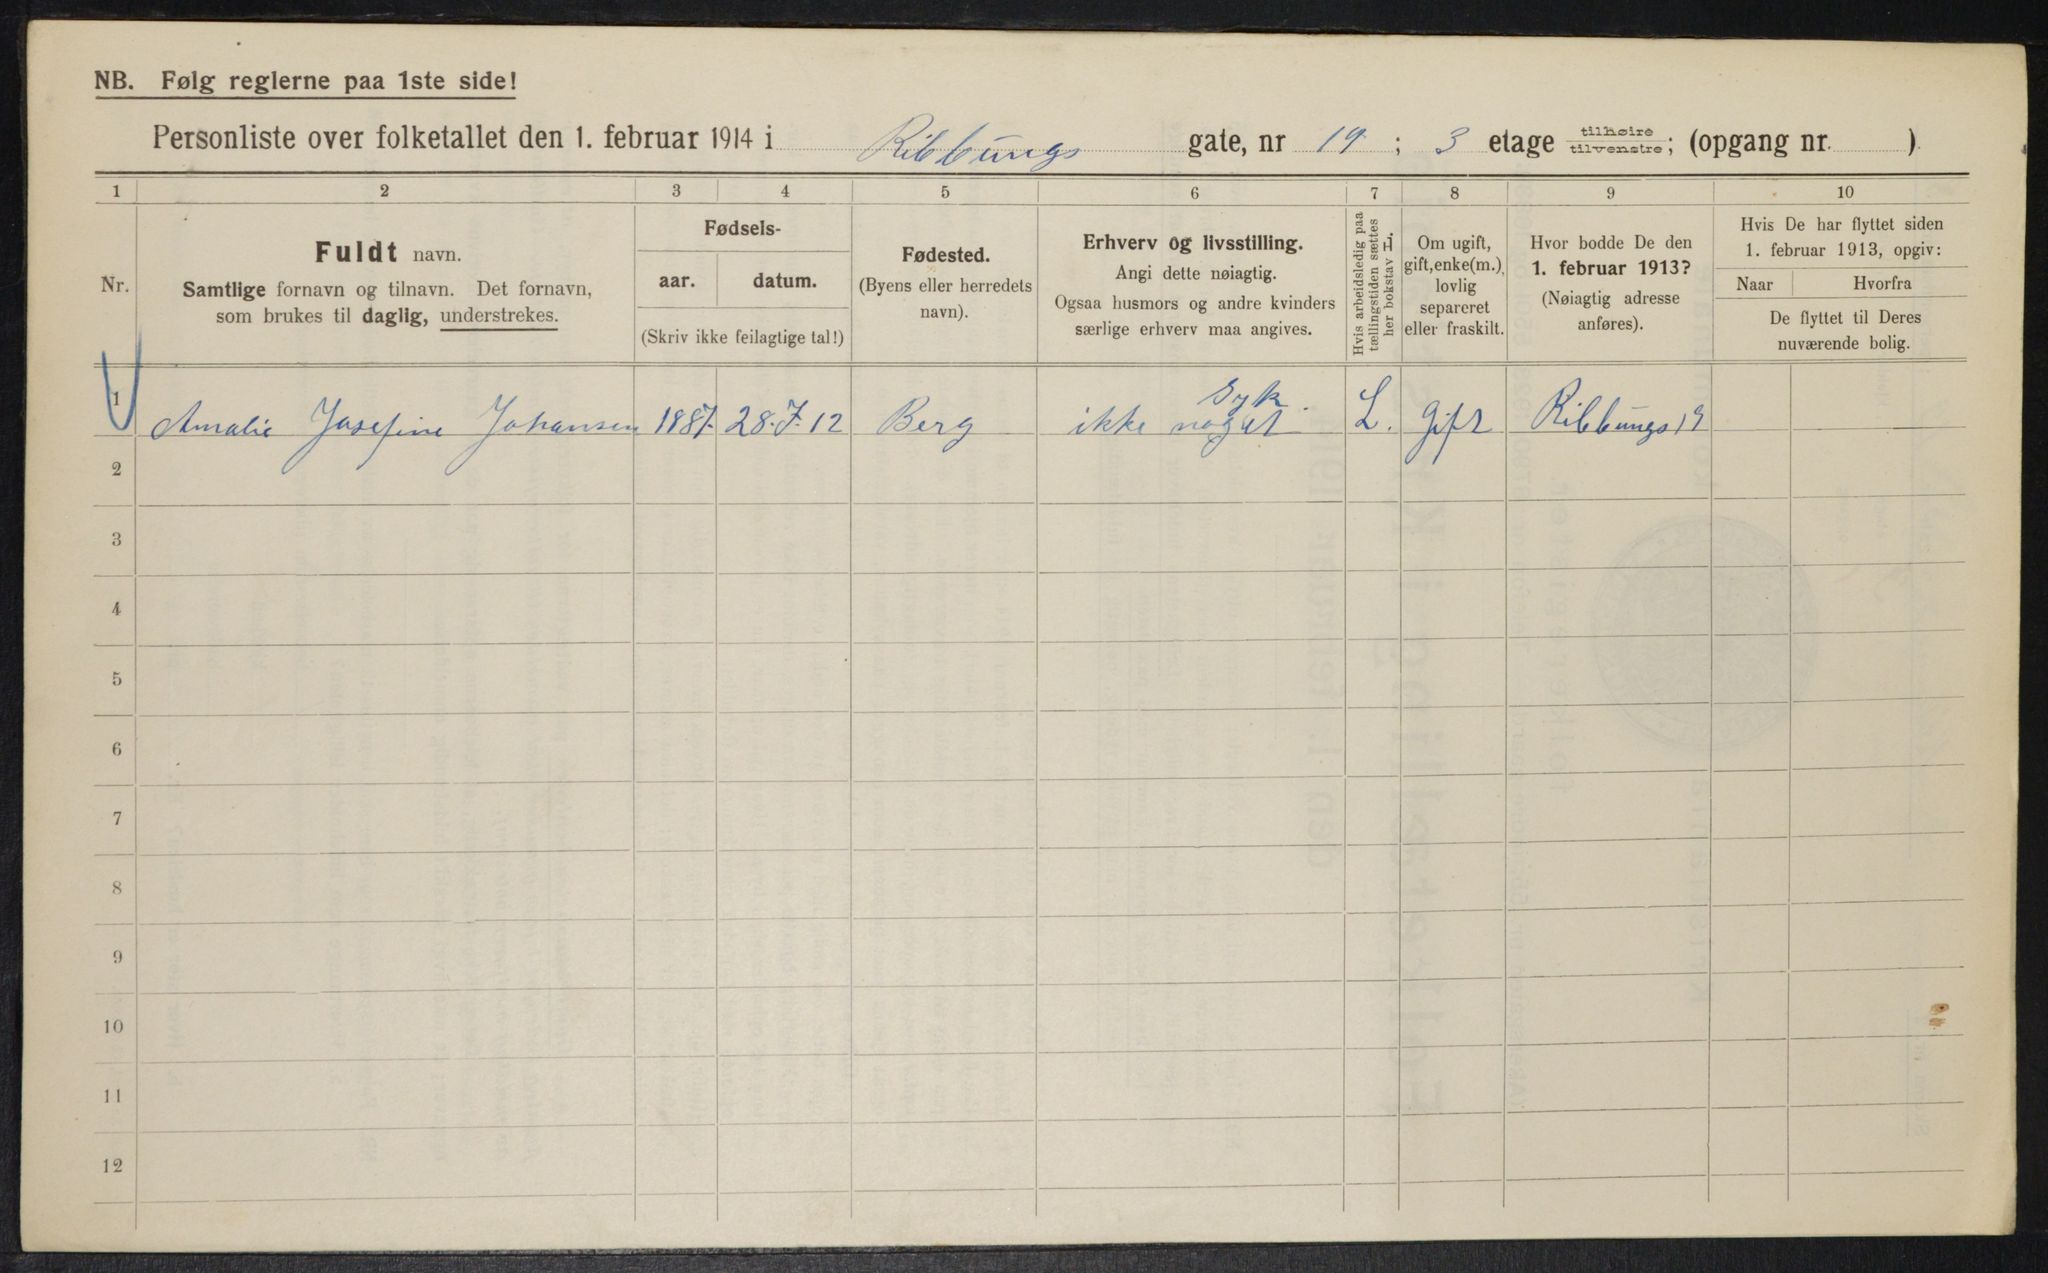 NB. Følg reglerne paa 1ste side!
Personliste over folketallet den 1. februar 1914 i Ribbungs gate, nr 19 ; 3 etage tilhøire tilvenstre; (opgang nr. )
1 2 3 4 5 6 7 8 9 10
Nr.
Fuldt navn.
Samtlige fornavn og tilnavn. Det fornavn,
som brukes til daglig, understrekes.
Fødsels-
aar. datum.
(Skriv ikke feilagtige tal!)
Fødested.
(Byens eller herredets
navn).
Erhverv og livsstilling.
Angi dette nøiagtig.
Ogsaa husmors og andre kvinders
særlige erhverv maa angives.
Hvis arbeidsledig paa
tællingstiden sættes
her bokstav L.
Om ugift,
gift, enke(m.),
lovlig
separeret
eller fraskilt.
Hvor bodde De den
1. februar 1913?
(Nøiagtig adresse
anføres).
Hvis De har flyttet siden
1. februar 1913, opgiv:
Naar Hvorfra
De flyttet til Deres
nuværende bolig.
syk.
1 Amalie Josefine Johansen 1887. 28. 12 Berg ikke noget L. Gift Ribbungs 19
2
3
4
5
6
7
8
9
10
11
12